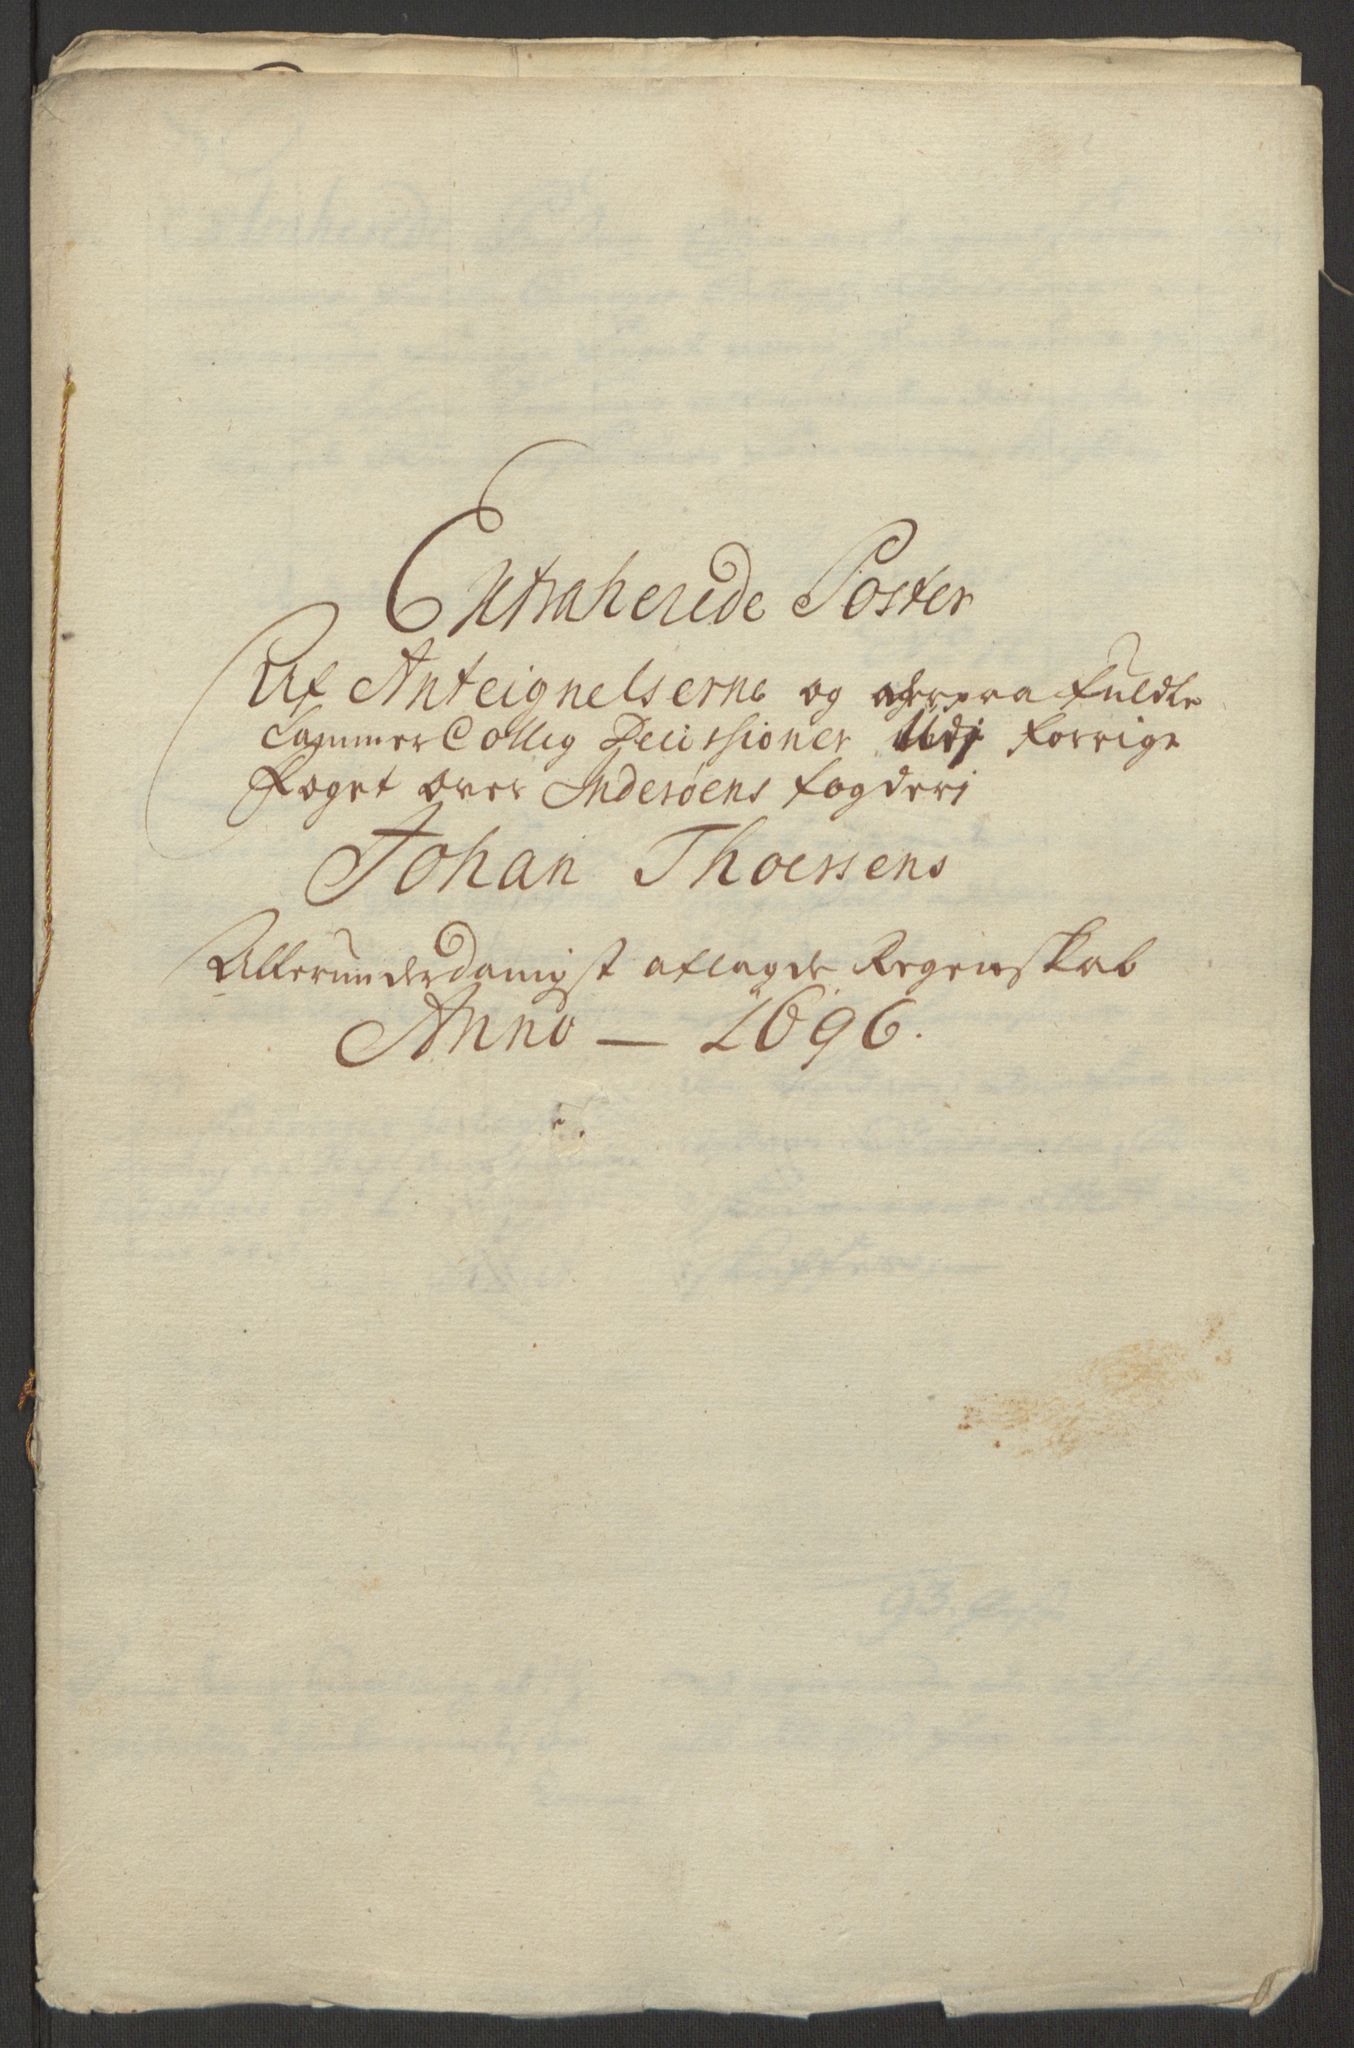 Extraherede Poster
Af Anteignelserne og derpaa fuldte
Cammer Collig Decissioner Udj forrige
foget over Inderøens fogderj
Johan Thoersens
Allerunderdanigst aflagde Regenskab
Anno — 1696.